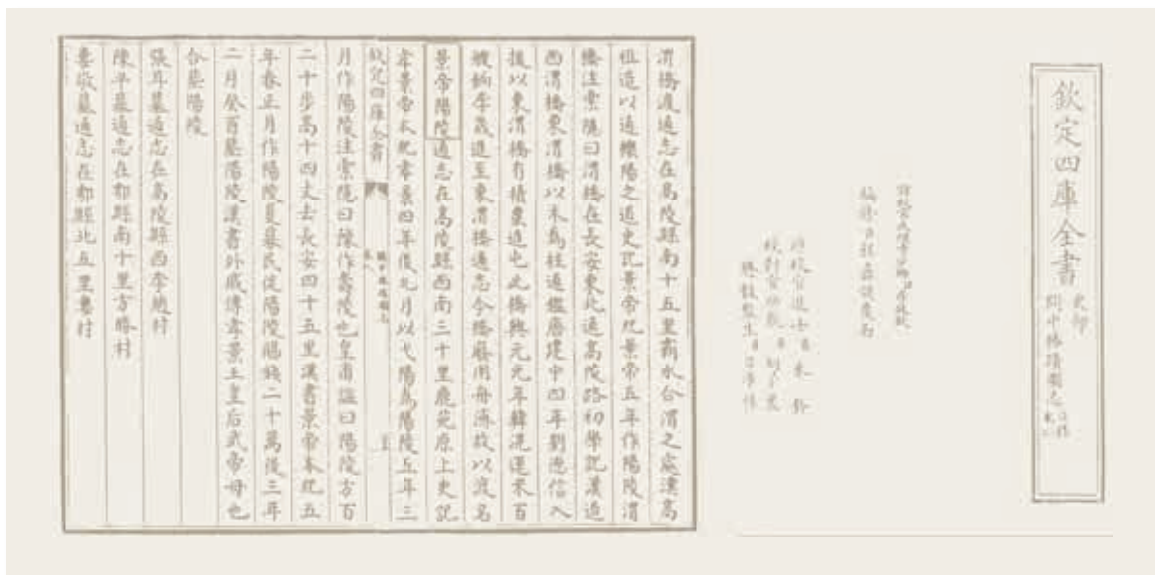 欽定四庫全書
史部
關中勝蹟圖志
渭橋渡通志在高陵縣南十五里霸水合渭之處漢高
祖造以通櫟陽之道史記景帝紀景帝五年作陽陵渭
橋注索隱曰渭橋在長安東北通高陵路初學記漢造
西渭橋東渭橋以木為柱通鑑唐建中四年劉德信入
援以東渭橋有積粟進屯此橋興元元年韓滉運米百
艘餉李晟進至東渭橋通志今橋廢用舟濟故以渡名
景帝陽陵通志在高陵縣西南三十里鹿苑原上史記
孝景帝本紀孝景四年後九月以弋陽為陽陵五年三
欽定四庫全書
關中勝蹟圖志
月作陽陵注索隱曰豫作壽陵也皇甫謐曰陽陵方百
二十步高十四丈去長安四十五里漢書景帝本紀五
年春正月作陽陵夏募民徙陽陵賜錢二十萬後三年
二月癸酉葬陽陵漢書外戚傳孝景王皇后武帝母也
合葬陽陵
張耳墓通志在高陵縣西李趙村
陳平墓通志在鄠縣南十里方勝村
婁敬墓通志在鄠縣北五里婁村